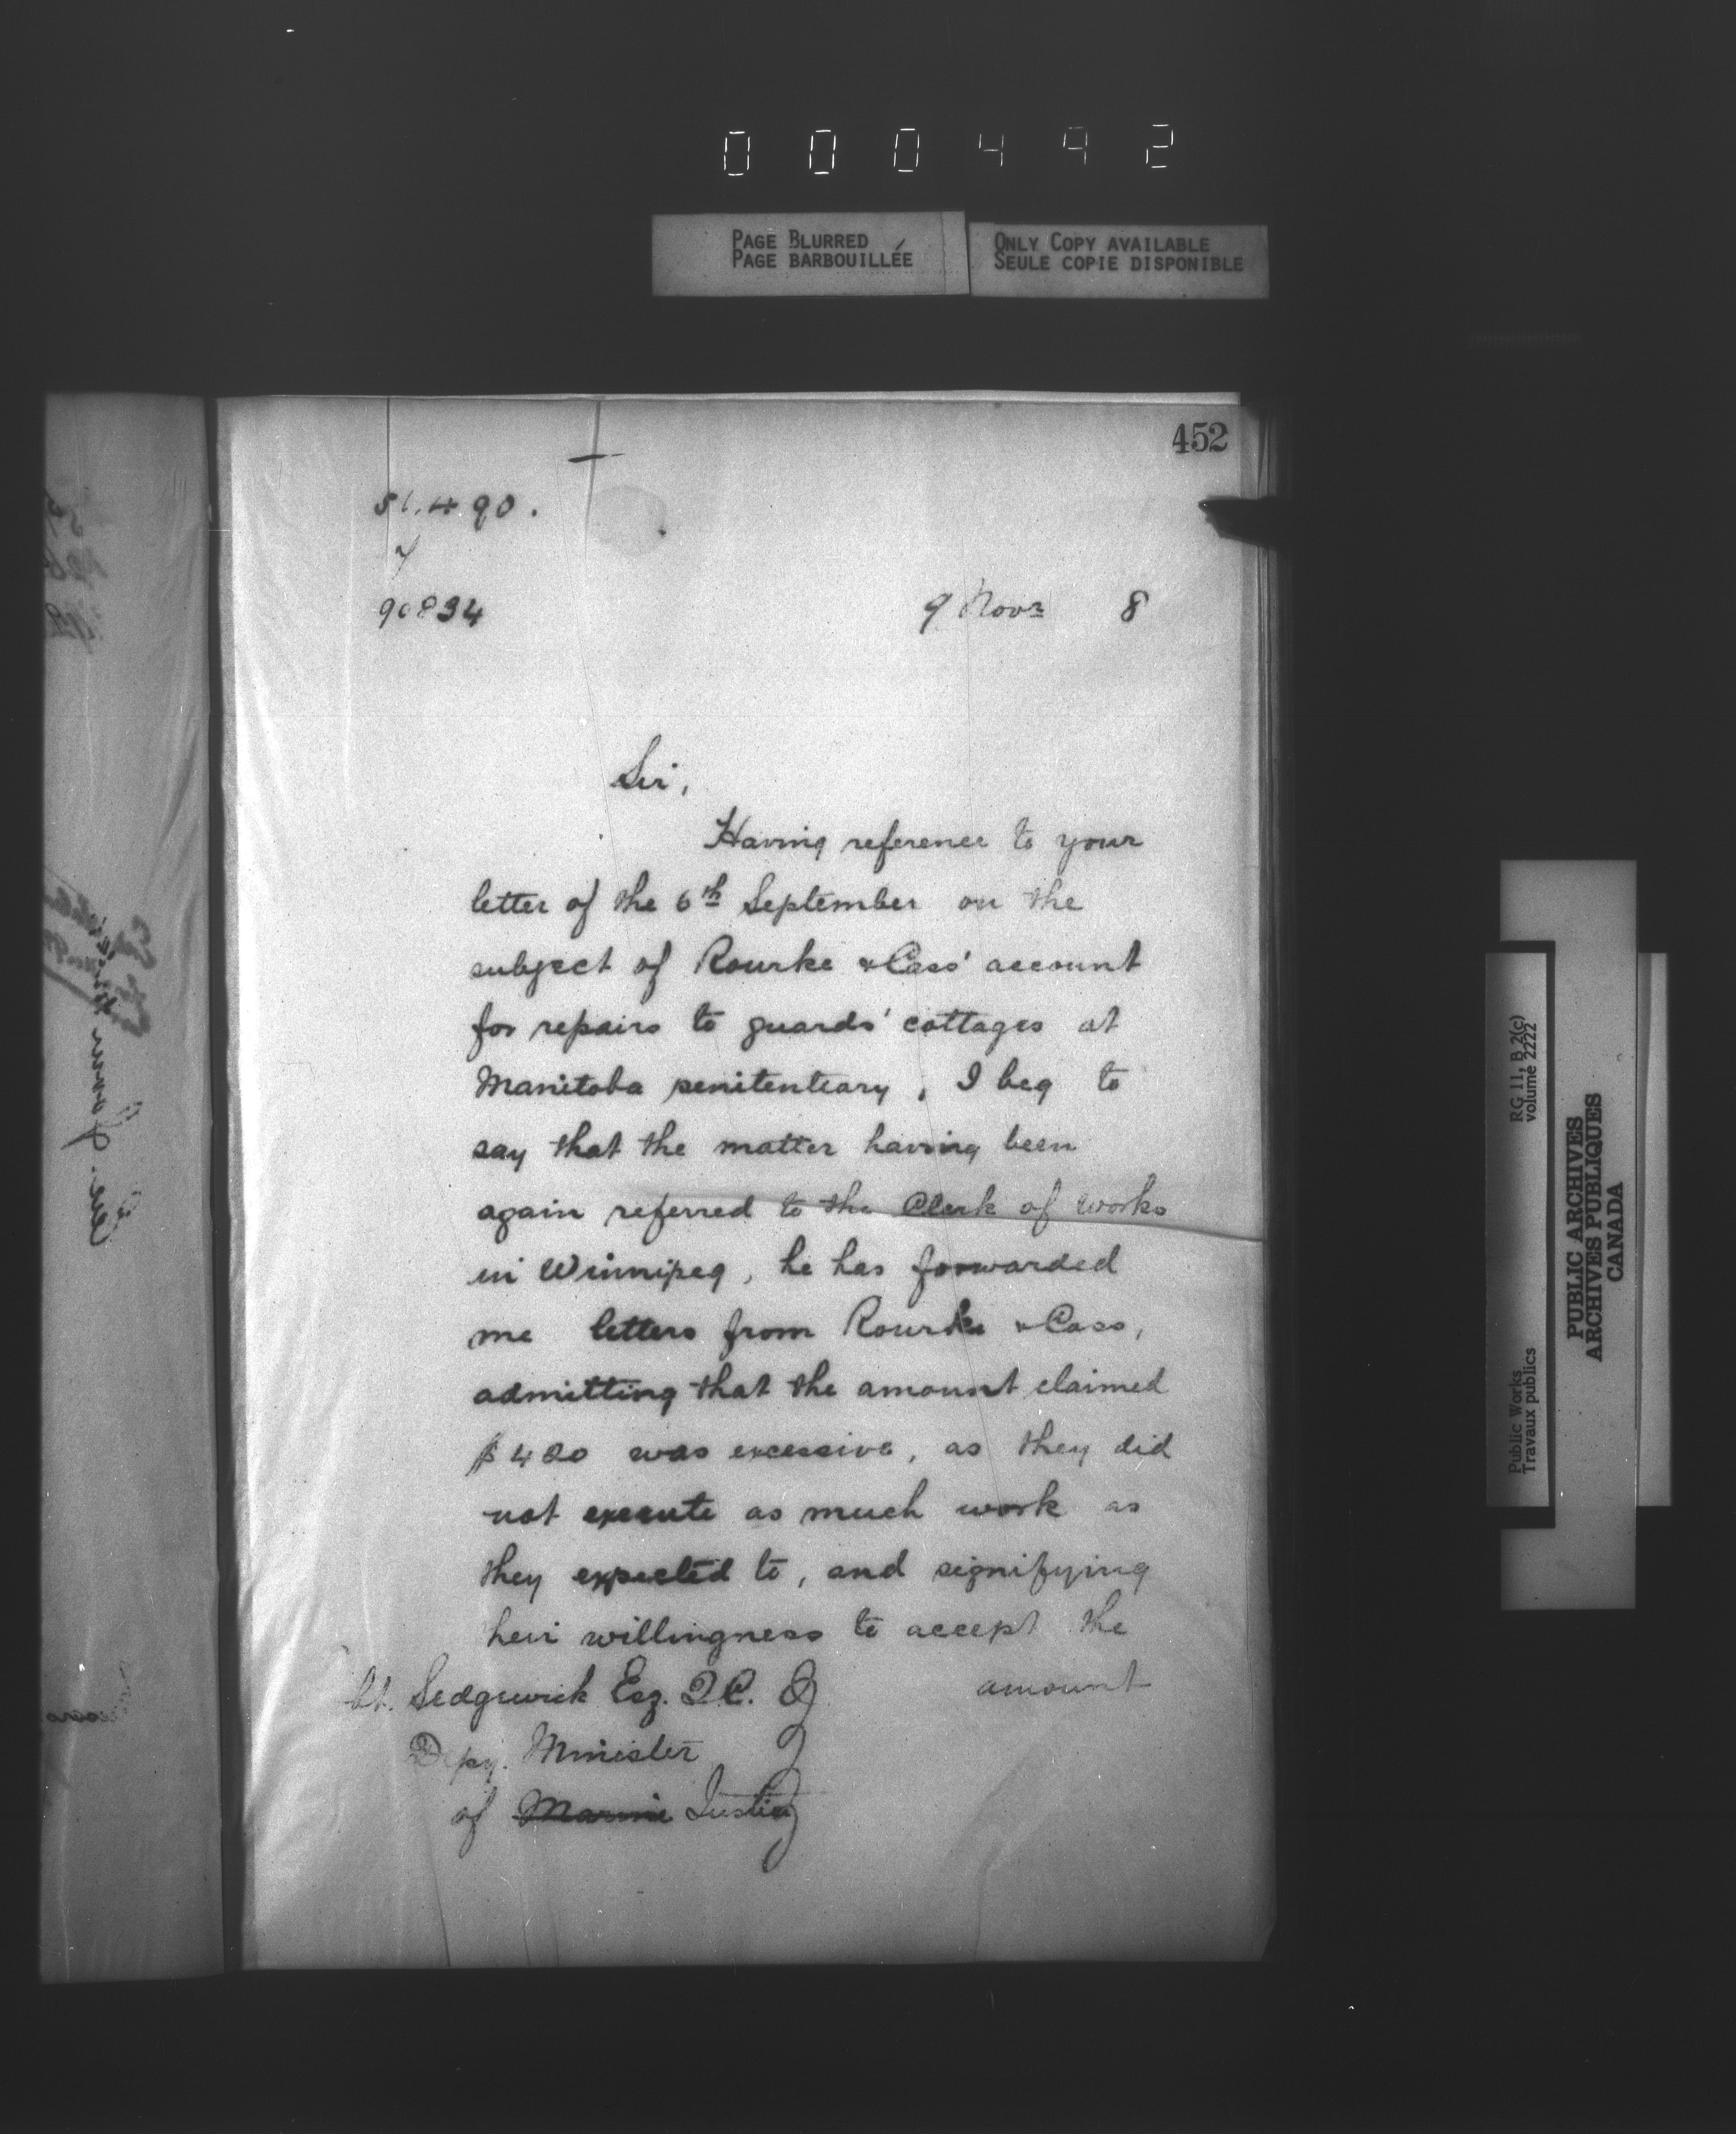 000492
PAGE BLURRED
PAGE BARBOUILLÉE
ONLY COPY AVAILABLE
SEULE COPIE DISPONIBLE
452
51.490.
90834
9 Novr 8
Sir,
Having reference to your
letter of the 6th September on the
subject of Rourke & Cass' account
for repairs to guards' cottages at
Manitoba penitentiary, I beg to
say that the matter having been
again referred to the Clerk of Works
in Winnipeg, he has forwarded
me letters from Rourke & Cass,
admitting that the amount claimed
$420 was excessive, as they did
not execute as much work as
they expected to, and signifying
heir willingness to accept the
amount
Sedgewick Esq. Q.C.
Depy. Minister
of Marine Justice
RG 11, B 2(c)
volume 2222
Public Works
Travaux publics
PUBLIC ARCHIVES
ARCHIVES PUBLIQUES
CANADA